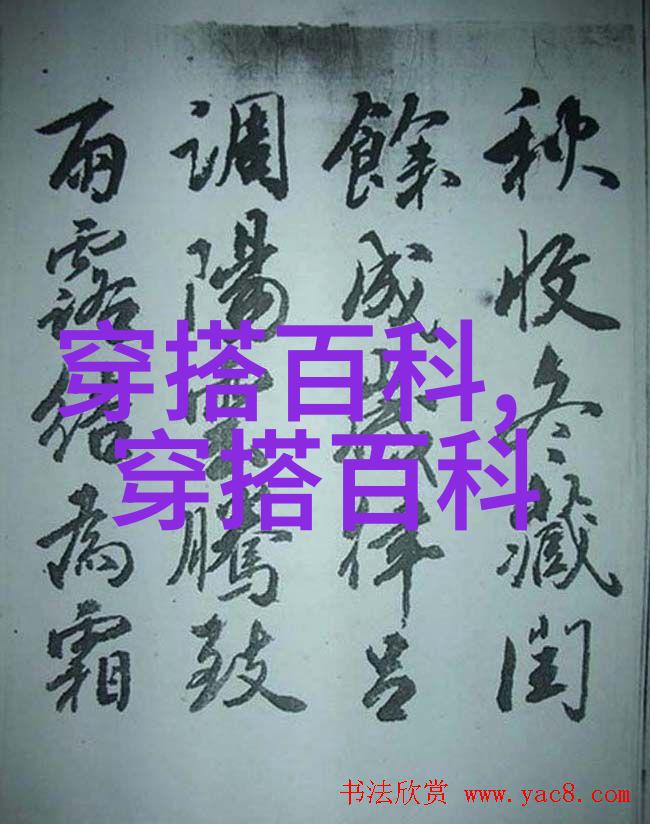 秋收冬藏閏
餘成歲律呂
調陽雲騰致
雨露結為霜
穿搭百科,
穿搭百科
书法欣赏 www.yac8.com